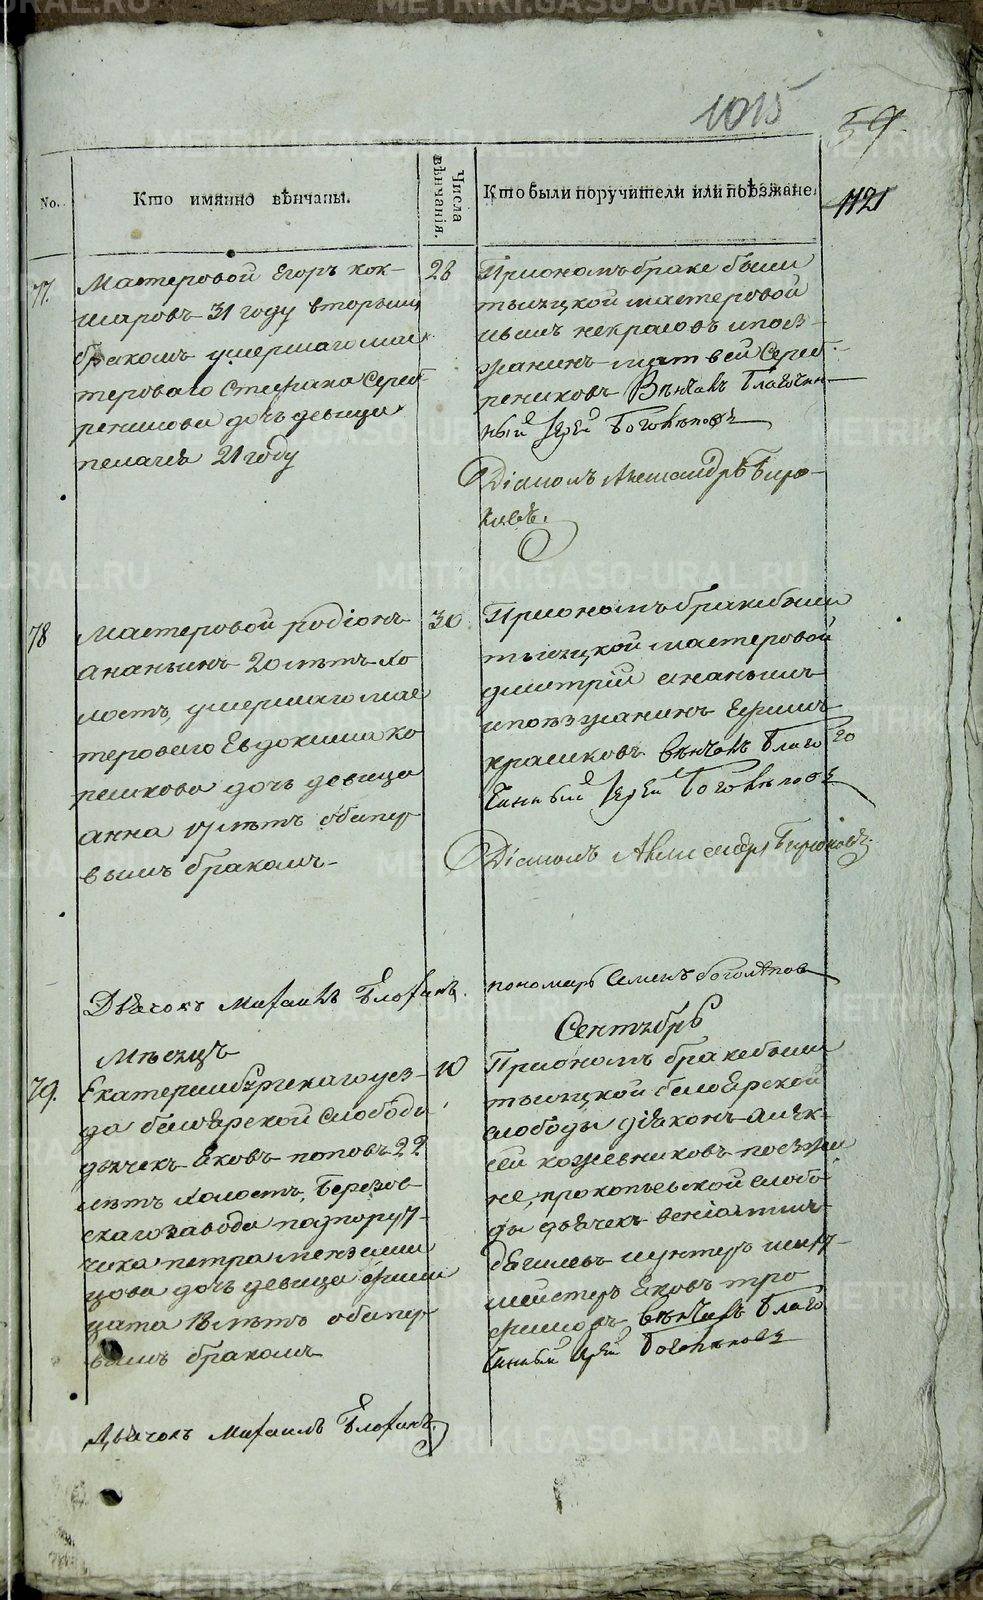 1015
59
1121
No.
Кто имянно вѣнчаны.
Числа вѣнчанія.
Кто были поручители или поѣзжане.
77.
Мастеровой Егоръ кок-
шаровъ 31 году вторымъ
бракомъ умершаго мас
тероваго Стефана Сереб
реникова дочь девица
пелагея 21 году
28
При ономъ браке были
мастеровой
некрасовъ и поез-
жанинъ матвей Сереб-
рениковъ Вѣнчалъ Благочин-
ный Іерей Боголѣповъ
Діаконъ Александръ Бирю-
ковъ.
78
Мастеровой родіонъ
ананьинъ 20 лѣтъ хо
лостъ, умершаго мас
тероваго Евдокима ко
решкова дочь девица
анна 17 лѣтъ оба пер
вымъ бракомъ
30.
При ономъ браке были
мастеровой
дмитрій ананьинъ
и поѣзжанинъ Ефимъ
крашковъ вѣнчалъ Благо
чинный Іерей Боголѣповъ
Діаконъ Александръ Бирюковъ
Дьячокъ Михаилъ
пономарь Семенъ боголѣпов
Мѣсяцъ
Сентябрь
79.
Екатеринбургскаго уез-
да белоярской слободы
дьячекъ Яковъ поповъ 22
лѣтъ холостъ, Березов-
скаго завода подпорут-
чика петра мензелин
цова дочь девица
18 лѣтъ оба пер
вымъ бракомъ
10
При ономъ браке были
белоярской
слободы діаконъ алек-
сей кожевниковъ поезжа
не, прокопьевской слобо-
ды дьячекъ веніаминъ
и унтеръ шихт-
мейстеръ Яковъ тро
фимовъ вѣнчалъ Благо
чинный Іерей Боголѣповъ
Дьячокъ Михаилъ